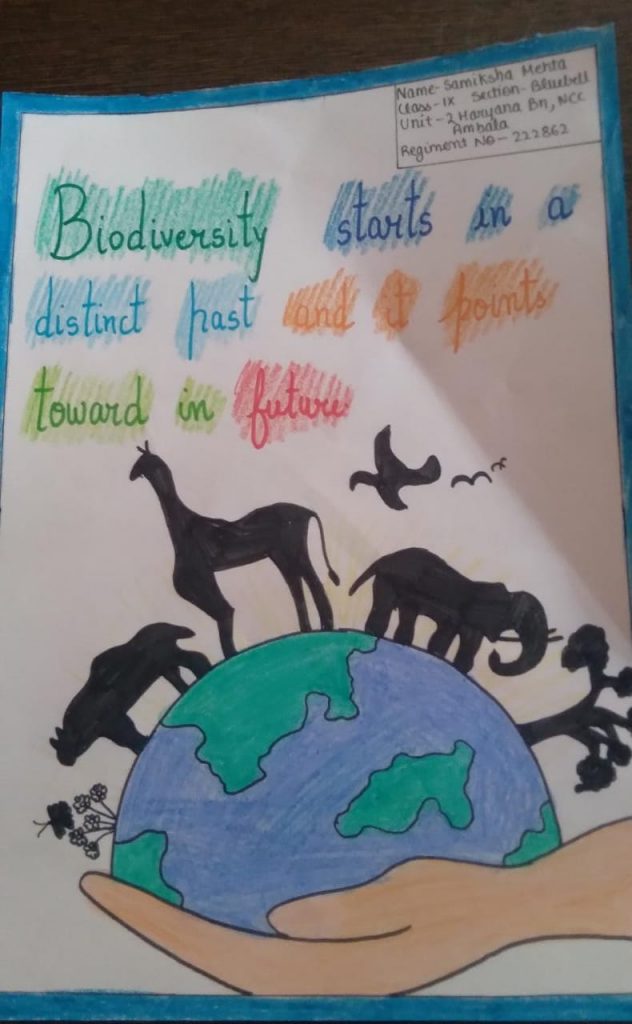 Name- Samiksha Mehta
Class-IX Section- Bluebell
Unit- 2 Haryana Bn, NCC
Ambala
Regiment No- 222862
Biodiversity starts in a
distinct past and it points
toward in future